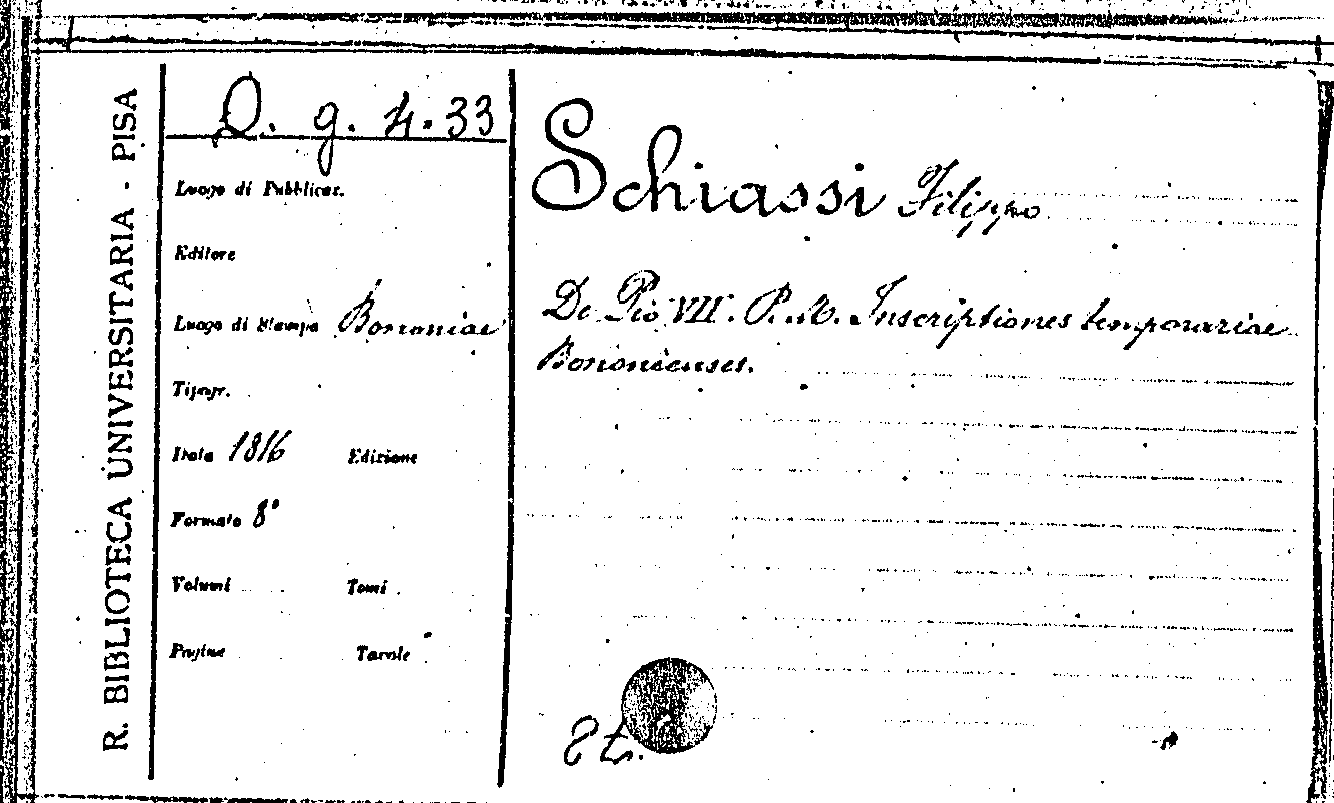 R. BIBLIOTECA UNIVERSITARIA - PISA
Q. g. 4. 33
Luogo di Pubblicaz.
Editore
Luogo di Stampa Bononiae
Tipogr.
Data 1816 Edizione
Formato 8°
Volumi Tomi
Pagine Tavole
Schiassi Filippo
De Pio VII. P. M. Inscriptiones temporariae
Bononienses.